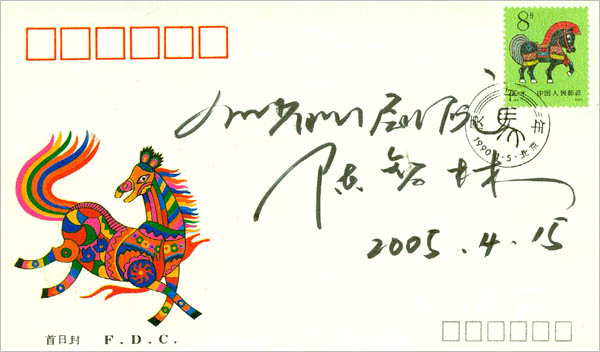 8分
中国人民邮政
1990.1.5.北京
剧院
陈智林
2005.4.15
首日封 F.D.C.